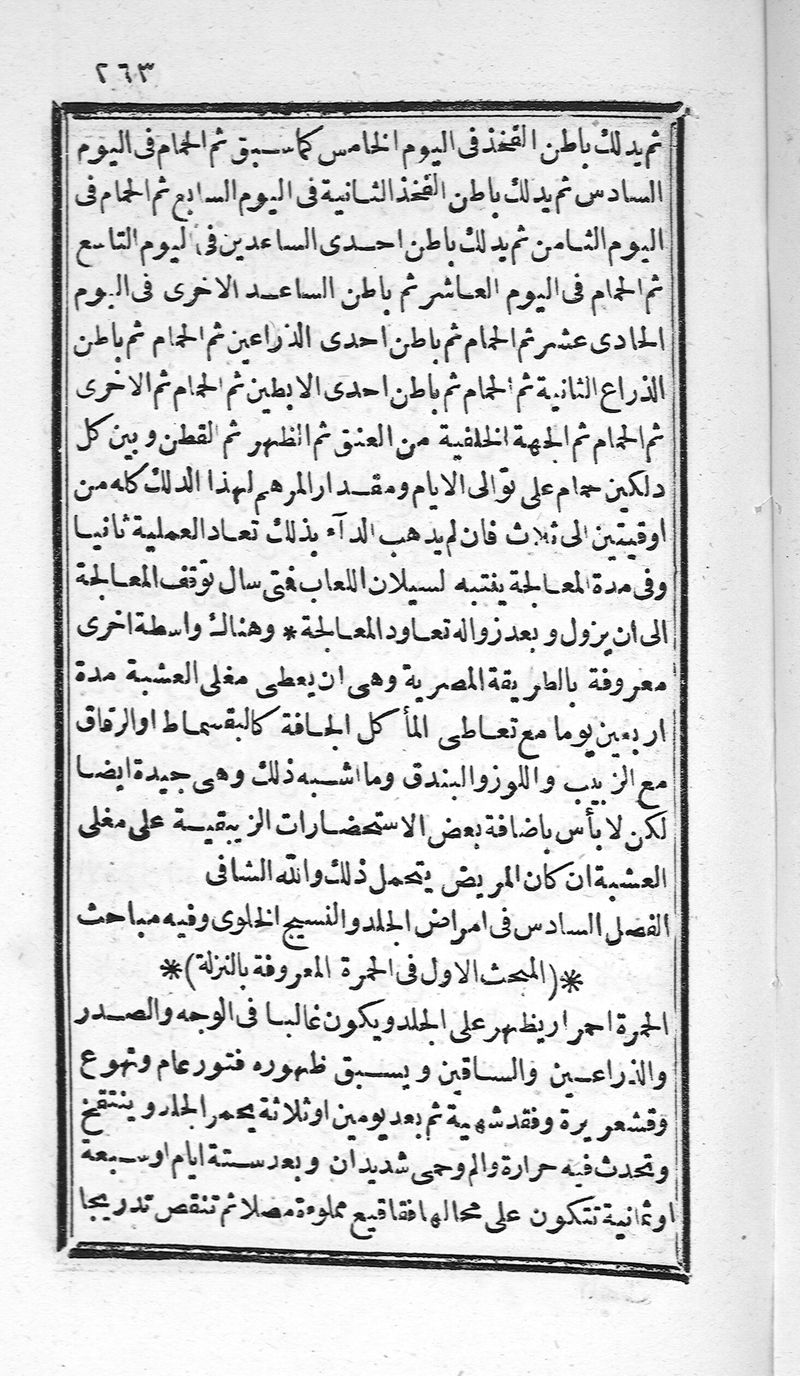 ٢٦٣
ثم يدلك باطن الفخذ فى اليوم الخامس كما سبق ثم الحمام فى اليوم
السادس ثم يدلك باطن الفخذ الثانية فى اليوم السابع ثم الحمام فى
اليوم الثامن ثم يدلك باطن احدى الساعدين فى اليوم التاسع
ثم الحمام فى اليوم العاشر ثم باطن الساعد الاخرى فى اليوم
الحادى عشر ثم الحمام ثم باطن احدى الذراعين ثم الحمام ثم باطن
الذراع الثانية ثم الحمام ثم باطن احدى الابطين ثم الحمام ثم الاخرى
ثم الحمام ثم الجهة الخلفية من العنق ثم الظهر ثم القطن وبين كل
دلكين حمام على توالى الايام ومقدار المرهم لهذا الدلك كله من
اوقيتين الى ثلاث فان لم يذهب الدآء بذلك تعاد العملية ثانيا
وفى مدة المعالجة ينتبه لسيلان اللعاب فمتى سال توقف المعالجة
الى ان يزول وبعد زواله تعاود المعالجة * وهناك واسطة اخرى
معروفة بالطريقة المصرية وهى ان يعطى مغلى العشبة مدة
اربعين يوما مع تعاطى المأكل الجافة كالبقسماط او الرقاق
مع الزبيب واللوز والبندق وما اشبه ذلك وهى جيدة ايضا
لكن لا بأس باضافة بعض الاستحضارات الزيبقية على مغلى
العشبة ان كان المريض يتحمل ذلك والله الشافى
الفصل السادس فى امراض الجلد والنسيج الخلوى وفيه مباحث
*(المبحث الاول فى الحمرة المعروفة بالنزلة)*
الحمرة احمرار يظهر على الجلد ويكون غالبا فى الوجه والصدر
والذراعين والساقين ويسبق ظهوره فتور عام وتهوع
وقشعريرة وفقد شهية ثم بعد يومين او ثلاثة يحمر الجلد وينتفخ
وتحدث فيه حرارة والم وحمى شديدان وبعد ستة ايام او سبعة
او ثمانية تتكون على محالها فقاقيع مملوءة مصلا ثم تنقص تدريجا